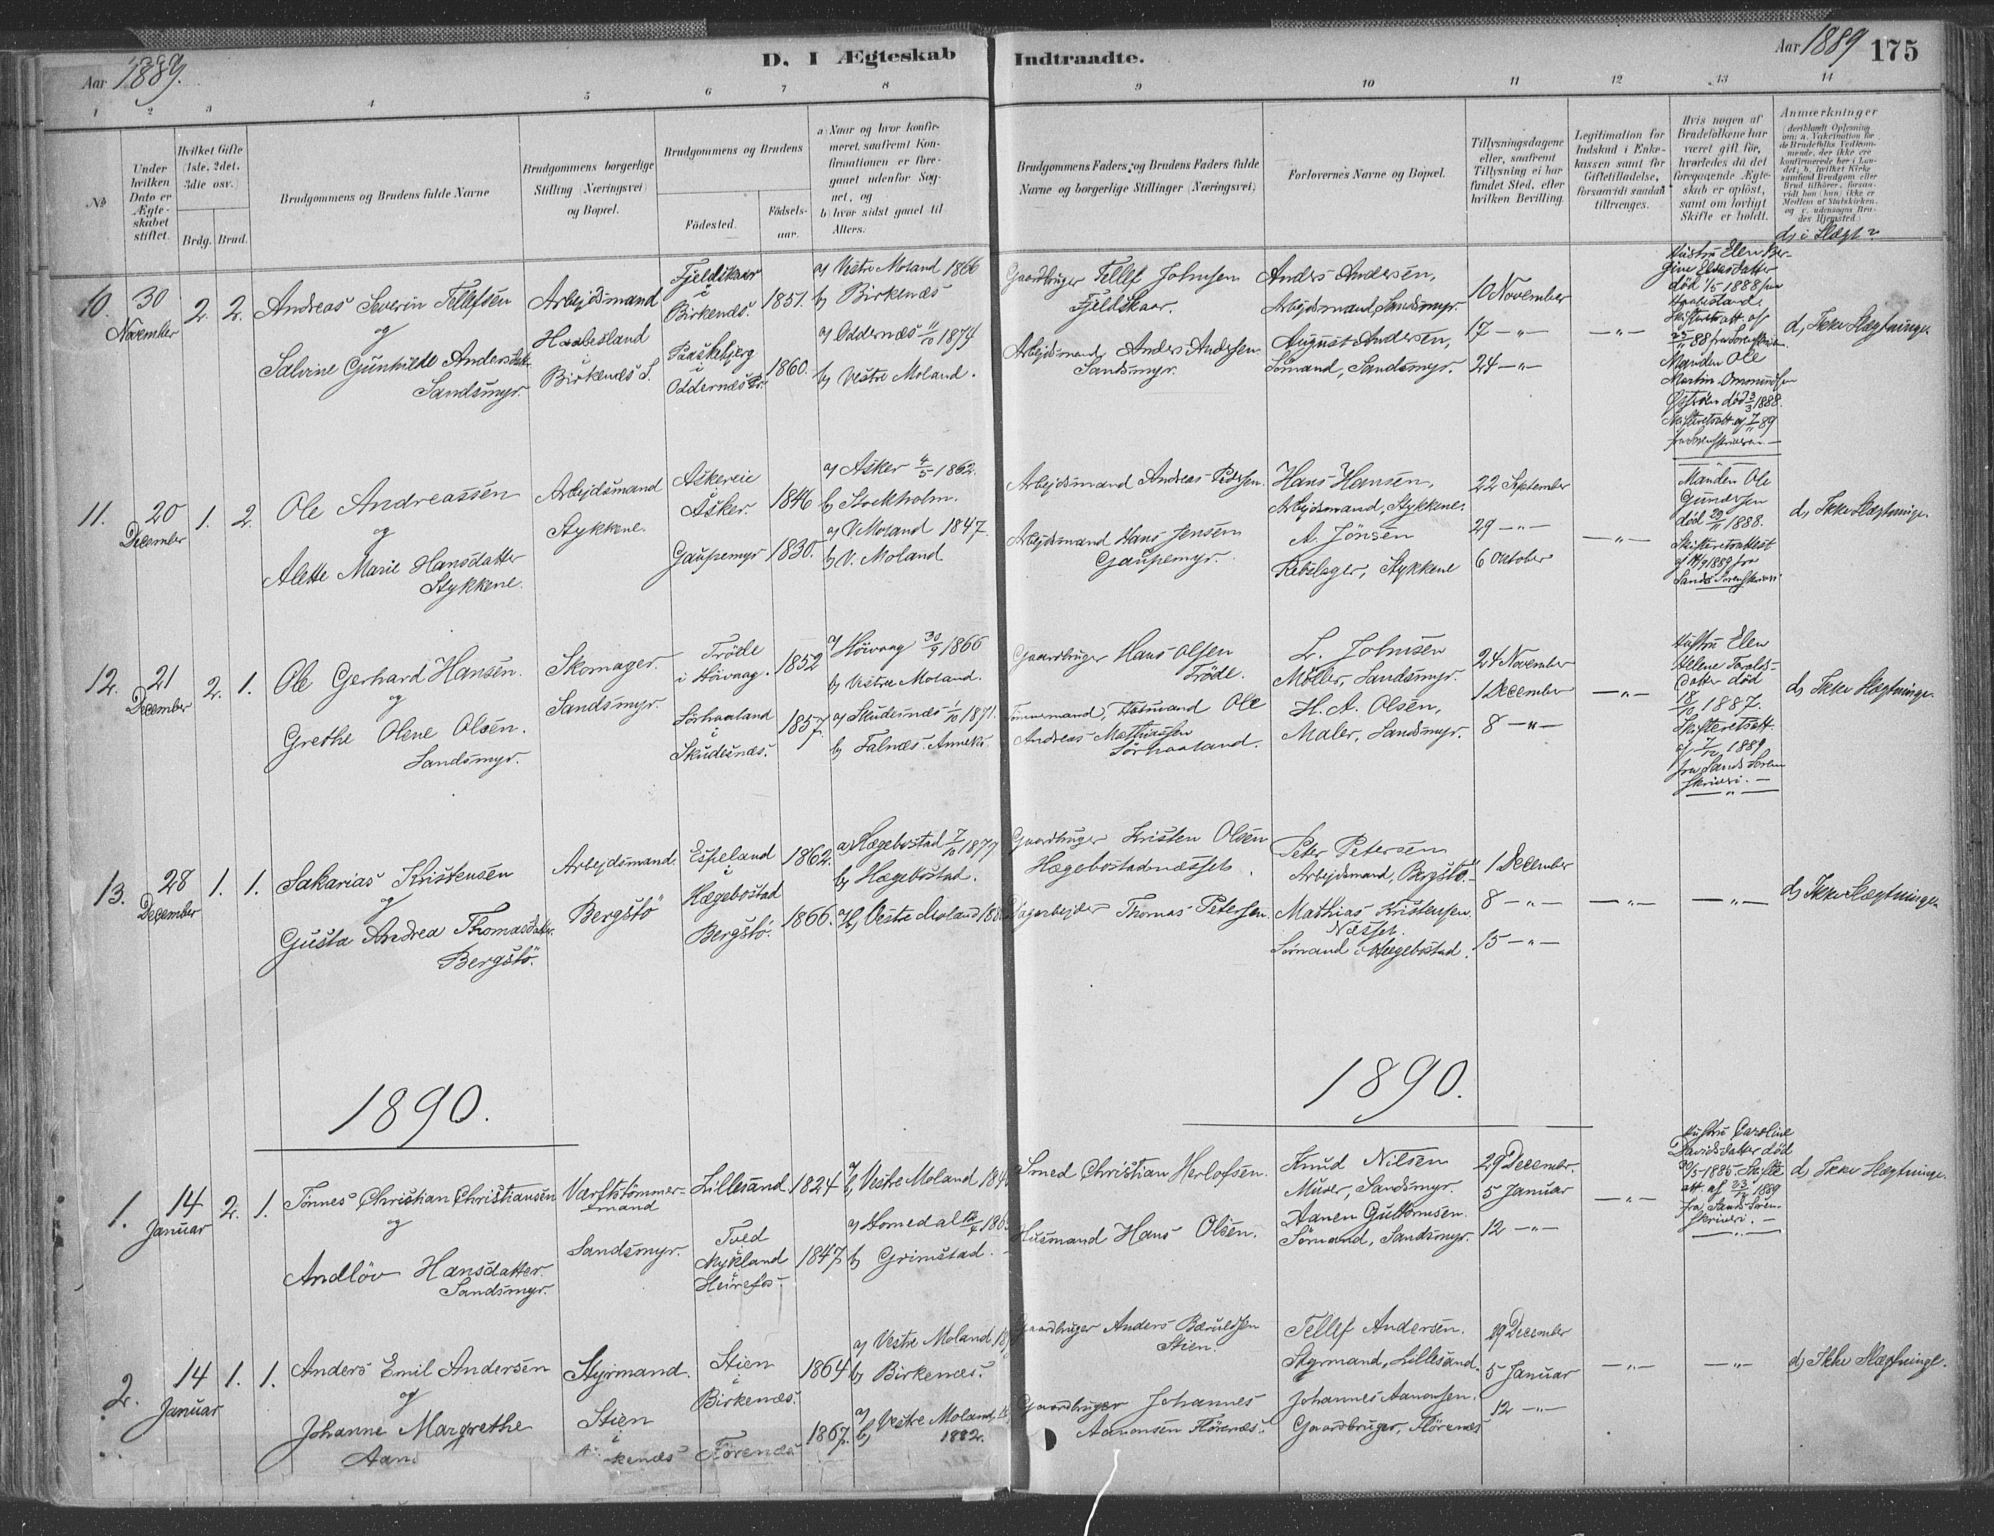 Aar 1889.
D. I Ægteskab
Indtraadte.
Aar 1889 175
1 2 3 4 5 6 7 8 9 10 11 12 13 14
No
Under hvilken Dato er Ægteskabet stiftet.
Hvilket Gifte (1ste, 2det, 3die osv.)
Brdg. Brud.
Brudgommens og Brudens fulde Navne
Brudgommens borgerlige Stilling (Næringsvei) og Bopæl.
Brudgommens og Brudens
Fødested.
Fødselsaar.
a) Naar og hvor konfirmeret, saafremt Konfirmationen er foregaaet udenfor Sognet, og
b) hvor sidst gaaet til Alters.
Brudgommens Faders og Brudens Faders fulde Navne og borgerlige Stillinger (Næringsvei)
Forlovernes Navne og Bopæl.
Tillysningsdagene eller, saafremt Tillysning ei har fundet Sted, efter hvilken Bevilling.
Legitimation for Indskud i Enkekassen samt for Giftetilladelse, forsaavidt saadan tiltrænges.
Hvis nogen af Brudefolkene har været gift før, hvorledes da det foregaaende Ægteskab er opløst, samt om lovligt Skifte er holdt.
Anmærkninger
d) i Slægt?
10. 30 November 2. 2.
Andreas Severin Tellefsen
og
Salvine Gunhilde Andersdatter
Sandsmyr.
Arbejdsmand
Haabesland
Birkenæs S.
Fjeldskaar
i
Birkenæs. 1851.
Paaskebjerg
i
Oddernæs Pr. 1860.
a) Vestre Moland 1866
b) Birkenæs
a) Oddernæs 11/10 1874
b) Vestre Moland.
Gaardbruger Tellef Johnsen
Fjeldskaar.
Arbejdsmand Anders Andersen
Sandsmyr.
Anders Andersen,
Arbejdsmand, Sandsmyr.
August Andersen,
Sømand, Sandsmyr.
10 November
17 — „ —
24 — „ —
— „ —
død 1/5 1888
Manden Ole
Martin Omoundsen
død 3/3 1888.
d) Ikke Slægtninge
11. 20 December 1. 2.
Ole Andreassen
og
Alette Marie Hansdatter
Stykkene.
Arbejdsmand
Stykkene.
Askereie
Asker. 1846
Gaupemyr 1830.
a) Asker 4/5 1862.
b) Stockholm.
a) V. Moland 1847.
b) V. Moland
Arbejdsmand Andreas Pedersen.
Arbejdsmand Hans Jensen
Gaupemyr.
Hans Hansen,
Arbejdsmand, Stykkene.
A. Jönsen
Rebslager, Stykkene
22 September
29 — „ —
6 Oktober
— „ —
Manden Ole
Gundersen
død 20/11 1888.
Skifteretsattest
af 14/9 1889 fra
Sands Sorenskriveri
d) Ikke Slægtninge.
12. 21 December 2. 1.
Ole Gerhard Hansen.
og
Grethe Olene Olsen.
Sandsmyr.
Skomager.
Sandsmyr.
Trøde
i Høivaag. 1852
Sørhaaland
i
Skudesnæs. 1857.
a) Høivaag 30/9 1866
b) Vestre Moland.
a) Skudesnæs 1/10 1871.
b) Falnæs Annex
Gaardbruger Hans Olsen
Trøde.
Tømmermand, Husmand Ole
Andreas Mathiassen
Sørhaaland.
L. Johnsen
Møller, Sandsmyr.
H. A. Olsen,
Maler, Sandsmyr.
24 November
1 December
8 — „ —
— „ —
Hustru Elen
Helene Torolds-
datter død
18/10 1887.
Skifteretsatt.
af 5/12 1889
fra Sands Soren
skriveri. —
— „ —
d) Ikke Slægtninge.
13. 28 December 1. 1.
Sakarias Kristensen
og
Gusta Andrea Thomasdatter
Bergstø.
Arbejdsmand.
Bergstø
Espeland
i
Hægebostad 1862.
Bergstø. 1866.
a) Hægebostad 7/10 1877
b) Hægebostad.
a) b) Vestre Moland
Gaardbruger Kristen Olsen
Hægebostadnæsset.
Dagarbejder Thomas Petersen
Peter Petersen
Arbejdsmand, Bergstø.
Mathias Kristensen
Næsset.
Sømand i Hægebostad.
1 December
8 — „ —
15 — „ —
— „ —
— „ —
d) Ikke Slægtninge.
1890.
1890.
1. 14 Januar 2. 1.
Tønnes Christian Christiansen
og
Andløv Hansdatter.
Sandsmyr.
Værftstømmer-
mand
Sandsmyr.
Lillesand 1824
Tved
Nykland
Heirefos 1847
a) b) Vestre Moland
a) Homedal
b) Grimstad.
Smed Christian Herlofsen.
Husmand Hans Olsen.
Knud Nilsen
Murer, Sandsmyr.
Aanen Guttormsen.
Sømand, Sandsmyr.
29 December.
5 Januar
12 — „ —
— „ —
Hustru Caroline
Davidsdatter død
att. af 23/12 1889
fra Sands Soren-
skriveri. —
— „ —
d) Ikke Slægtninge
2. 14 Januar 1. 1.
Anders Emil Andersen
og
Johanne Margrethe
Aan
Styrmand.
Stien
i
kenæs
Stien
i
Birkenæs. 1864
Flørenæs 1867.
a) Vestre Moland
b) Birkenæs.
a) b) Vestre Moland,
1882.
Gaardbruger Anders Bærulfsen
Stien.
Gaardbruger Johannes
Aanonsen Flørenæs.
Tellef Andersen.
Styrmand, Lillesand.
Johannes Aanonsen.
Gaardbruger, Flørenæs
29 December
5 Januar
12 — „ —
— „ —
— „ —
d) Ikke Slægtninge.